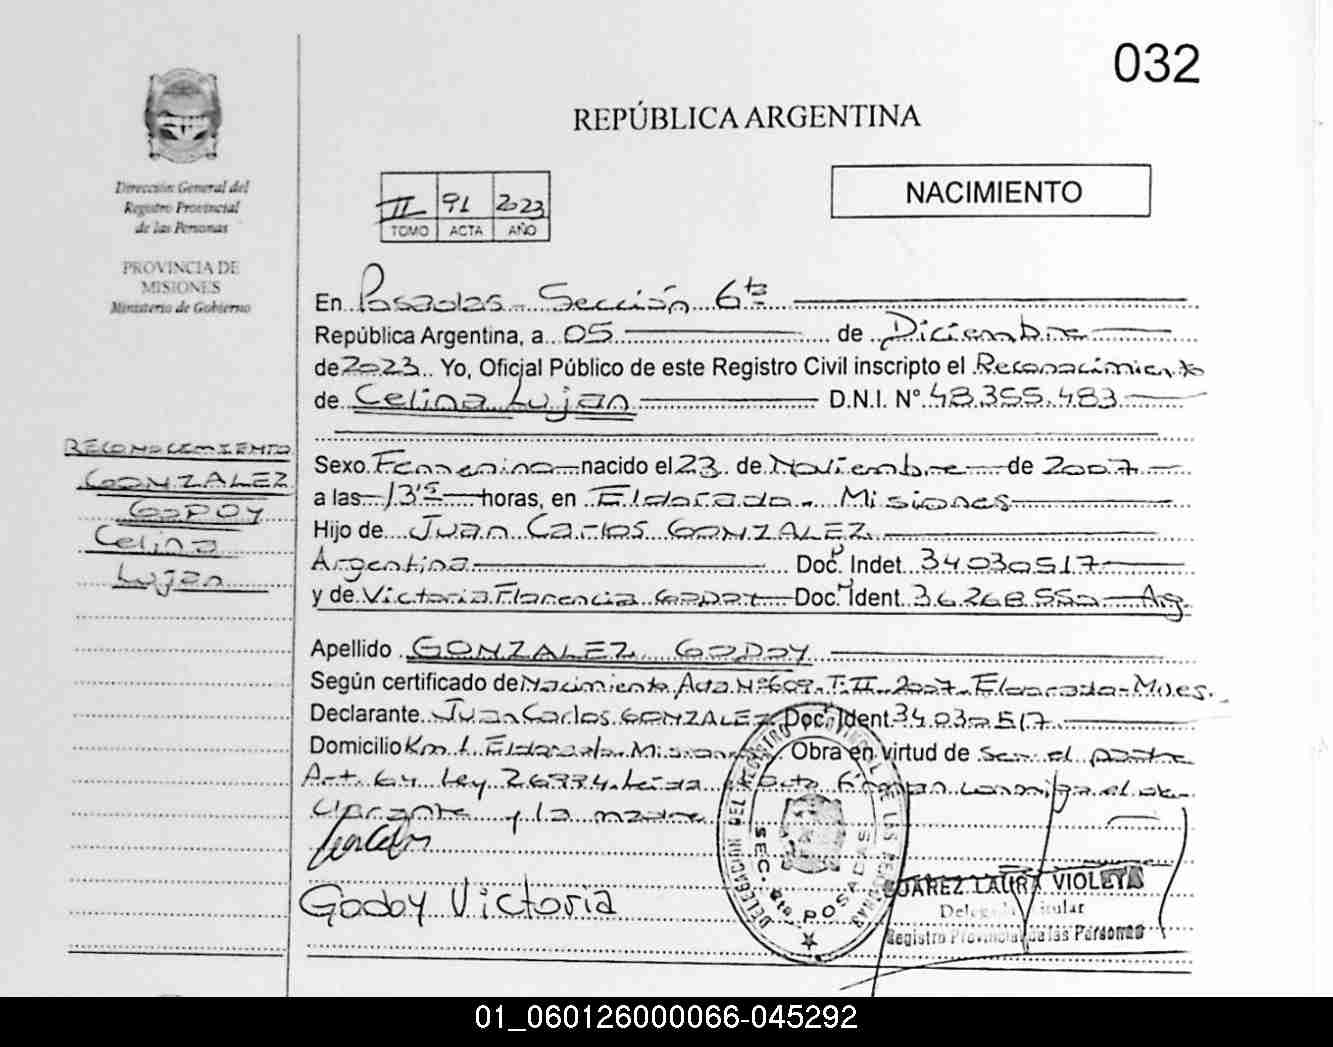 032
REPÚBLICA ARGENTINA
NACIMIENTO
Dirección General del
Registro Provincial
de las Personas
PROVINCIA DE
MISIONES
Ministerio de Gobierno
II 91 2023
TOMO ACTA AÑO
En Posadas - Sección 6ta
República Argentina, a 05 de Diciembre
de 2023 Yo, Oficial Público de este Registro Civil inscripto el Reconocimiento
de Celina Luján D.N.I. Nº 48.355.483
RECONOCIMIENTO
GONZALEZ
GODOY
Celina
Luján
Sexo Femenino nacido el 23 de Noviembre de 2007
a las 13 15 horas, en Eldorado - Misiones
Hijo de Juan Carlos GONZALEZ
Argentina Doc. Indet 34.030517
y de Victoria Florencia GODOY Doc. Ident. 36.268.550 Arg.
Apellido GONZALEZ GODOY
Según certificado de Nacimiento Acta Nº 609 - T. II - 2007 - Eldorado - Mnes.
Declarante Juan Carlos GONZALEZ Doc. Ident 34.030517
Domicilio Km 1. Eldorado Misiones Obra en virtud de ser el padre
Art. 64 Ley 26994. Leída Acta Firman conmigo el de-
clarante y la madre
Godoy Victoria
DELEGACION DEL REGISTRO PROVINCIAL DE LAS PERSONAS
SEC. 6ta POSADAS
JUAREZ LAURA VIOLETA
Delegada Titular
Registro Provincial de las Personas
01_060126000066-045292